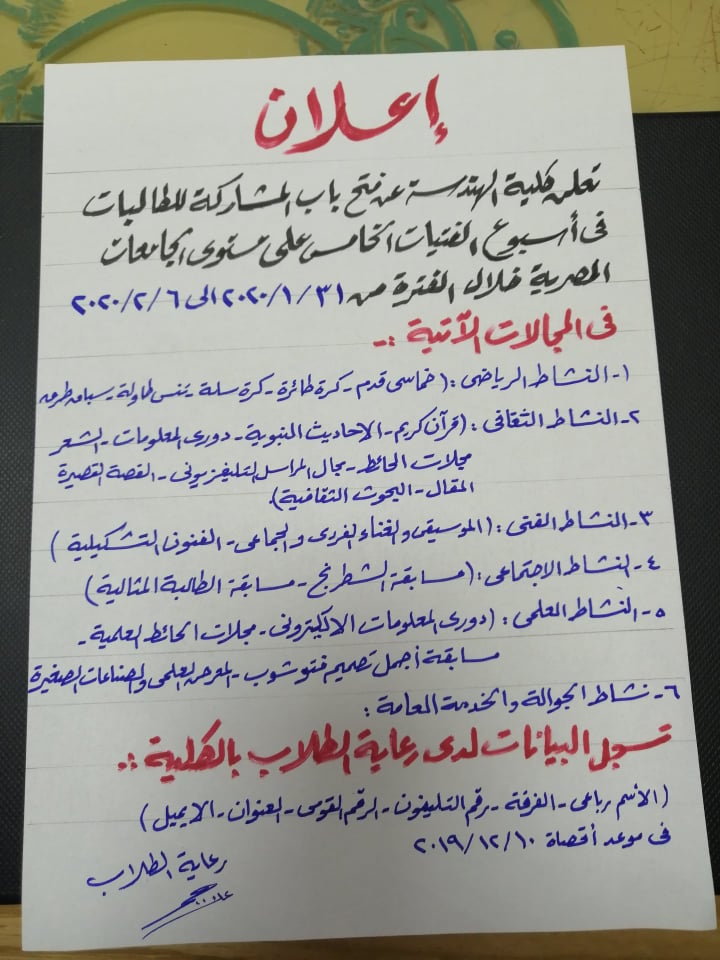 إعلان
تعلن كلية الهندسة عن فتح باب المشاركة للطالبات
فى أسبوع الفتيات الخامس على مستوى الجامعات
المصرية خلال الفترة من ٢٠٢٠/١/٣١ الى ٢٠٢٠/٢/٦
فى المجالات الآتية :-
١- النشاط الرياضى : (خماسى قدم - كرة طائرة - كرة سلة - تنس طاولة - سباق طريق
٢- النشاط الثقافى : (قرآن كريم - الاحاديث النبوية - دورى المعلومات - الشعر
مجلات الحائط - مجال المراسل التليفزيونى - القصة القصيرة
المقال - البحوث الثقافية).
٣- النشاط الفنى : (الموسيقى والغناء الفردى والجماعى - الفنون التشكيلية)
٤- النشاط الاجتماعى : (مسابقة الشطرنج - مسابقة الطالبة المثالية)
٥- النشاط العلمى : (دورى المعلومات الالكترونى - مجلات الحائط العلمية -
مسابقة أجمل تصميم فوتوشوب - المعرض العلمى والصناعات الصغيرة
٦- نشاط الجوالة والخدمة العامة :
تسجل البيانات لدى رعاية الطلاب بالكلية :.
(الأسم رباعى - الفرقة - رقم التليفون - الرقم القومى - العنوان - الايميل)
فى موعد أقصاة ٢٠١٩/١٢/١٠
رعاية الطلاب